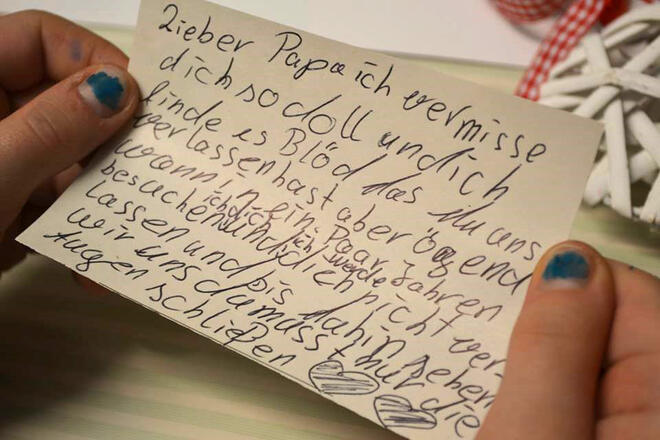 Lieber Papa ich vermisse
dich so doll und ich
finde es Blöd das du uns
verlassen hast aber
wann in ein Paar Jahren
ich dich ich werde
besuchen und dich nicht ver-
lassen und bis dahin sehen
wir uns du musst nur die
Augen schließen